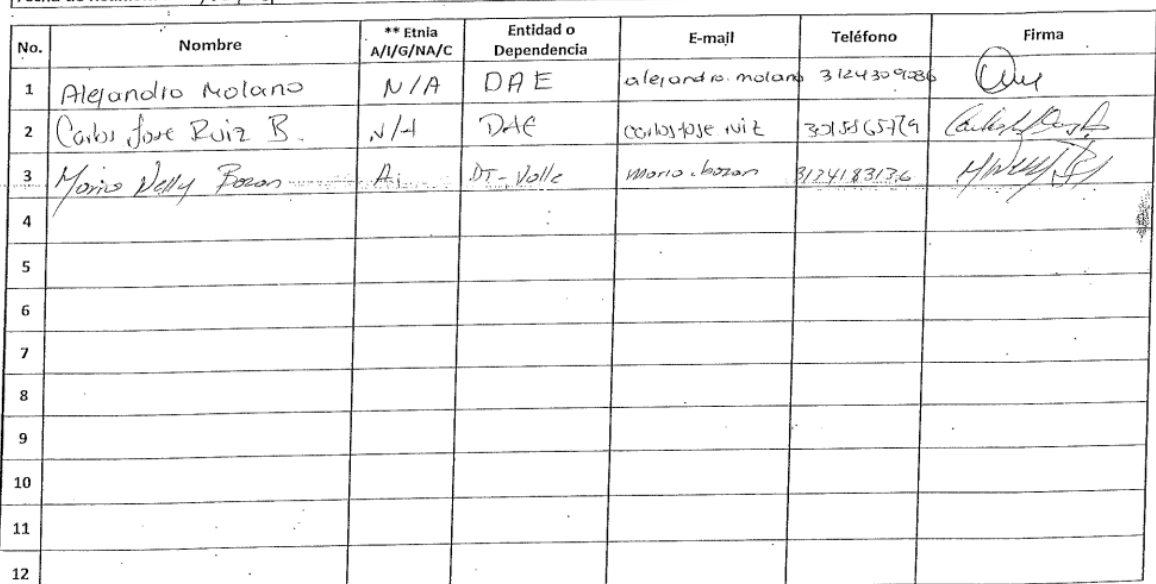 No. Nombre ** Etnia A/I/G/NA/C Entidad o Dependencia E-mail Teléfono Firma
1 Alejandro Molano N/A DAE alejandro.molano 3124309086
2 Carlos Jose Ruiz B. N/A DAE carlosjose.ruiz
3 Maria Nelly Bozon A. DT-Valle maria.bozon 3124183136
4
5
6
7
8
9
10
11
12